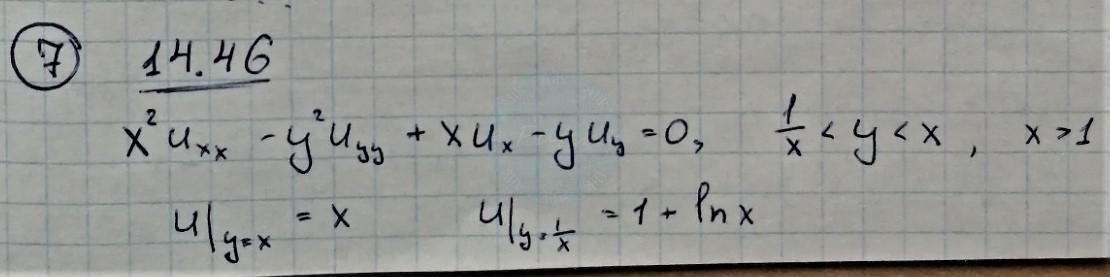 7 14.46
x² u_xx - y² u_yy + x u_x - y u_y = 0, 1/x < y < x, x > 1
u|_y=x = x u|_y=1/x = 1 + ln x